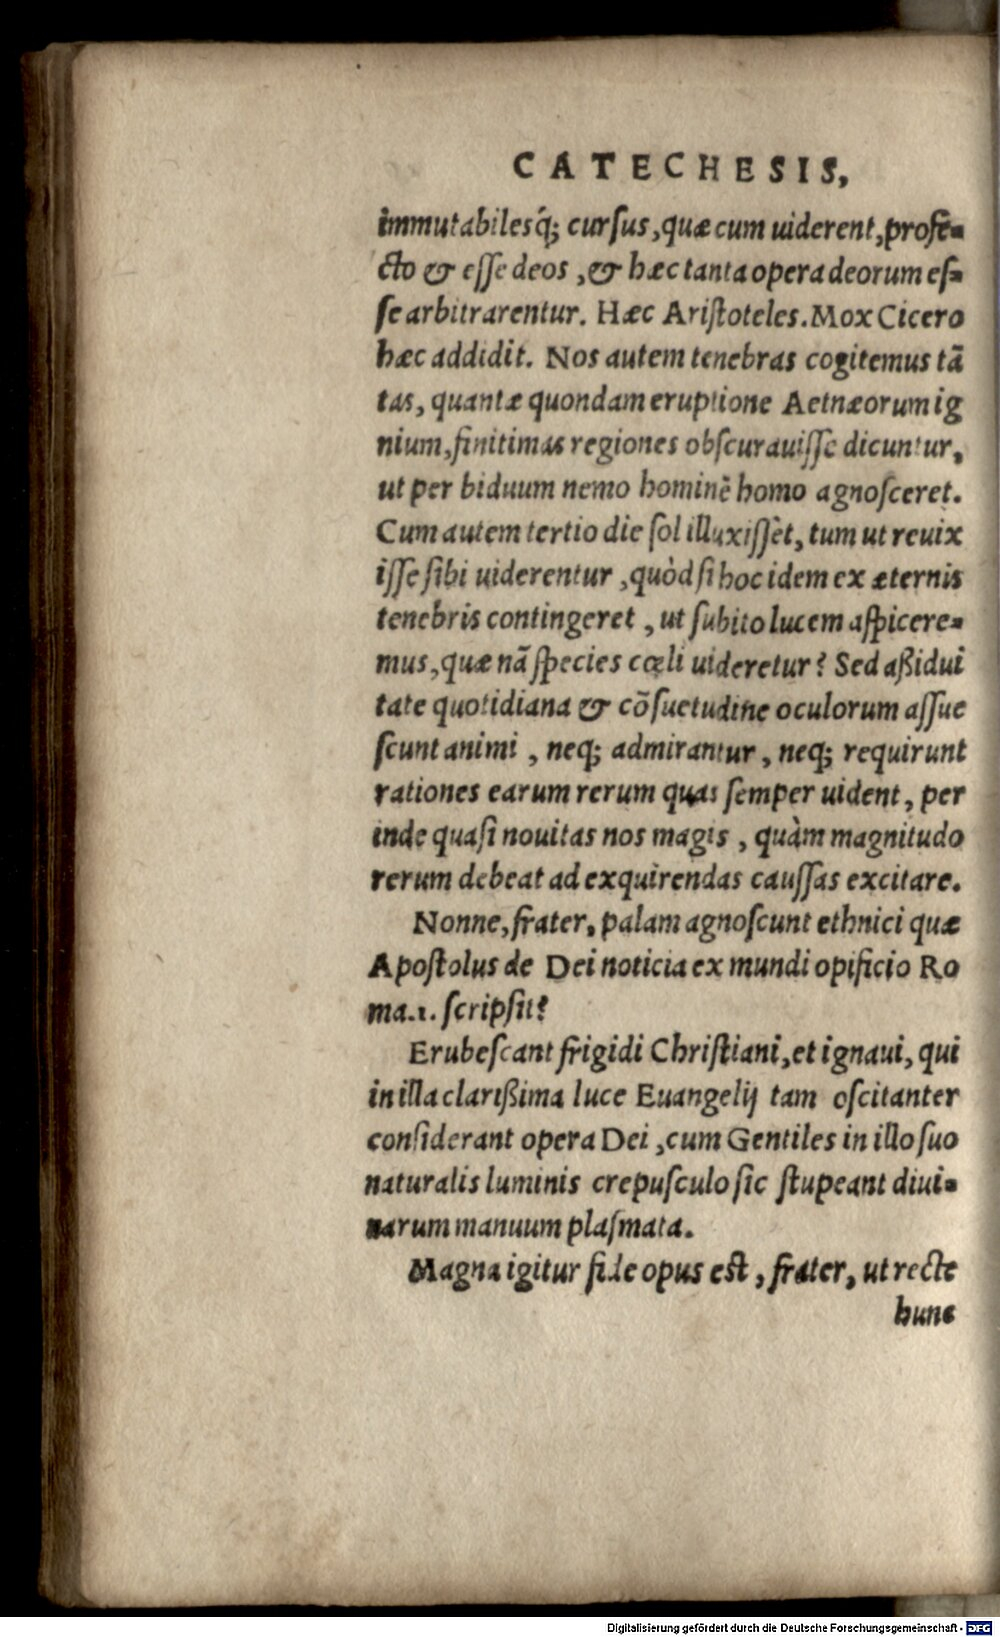 CATECHESIS,
immutabilesq́; cursus, quæ cum uiderent, profe-
cto & esse deos, & hæc tanta opera deorum es-
se arbitrarentur. Hæc Aristoteles. Mox Cicero
hæc addidit. Nos autem tenebras cogitemus tã
tas, quantæ quondam eruptione Aetnæorum ig
nium, finitimas regiones obscurauisse dicuntur,
ut per biduum nemo hominẽ homo agnosceret.
Cum autem tertio die sol illuxisset, tum ut reuix
isse sibi uiderentur, quòd si hoc idem ex æternis
tenebris contingeret, ut subito lucem aspicere-
mus, quæ nã species cœli uideretur? Sed aßidui
tate quotidiana & cõsuetudine oculorum assue
scunt animi, neq; admirantur, neq; requirunt
rationes earum rerum quas semper uident, per
inde quasi nouitas nos magis, quàm magnitudo
rerum debeat ad exquirendas caussas excitare.
Nonne, frater, palam agnoscunt ethnici quæ
Apostolus de Dei noticia ex mundi opificio Ro
ma.1. scripsit?
Erubescant frigidi Christiani, et ignaui, qui
in illa clarißima luce Euangelij tam oscitanter
considerant opera Dei, cum Gentiles in illo suo
naturalis luminis crepusculo sic stupeant diui-
narum manuum plasmata.
Magna igitur fide opus est, frater, ut recte
hunc
Digitalisierung gefördert durch die Deutsche Forschungsgemeinschaft - DFG